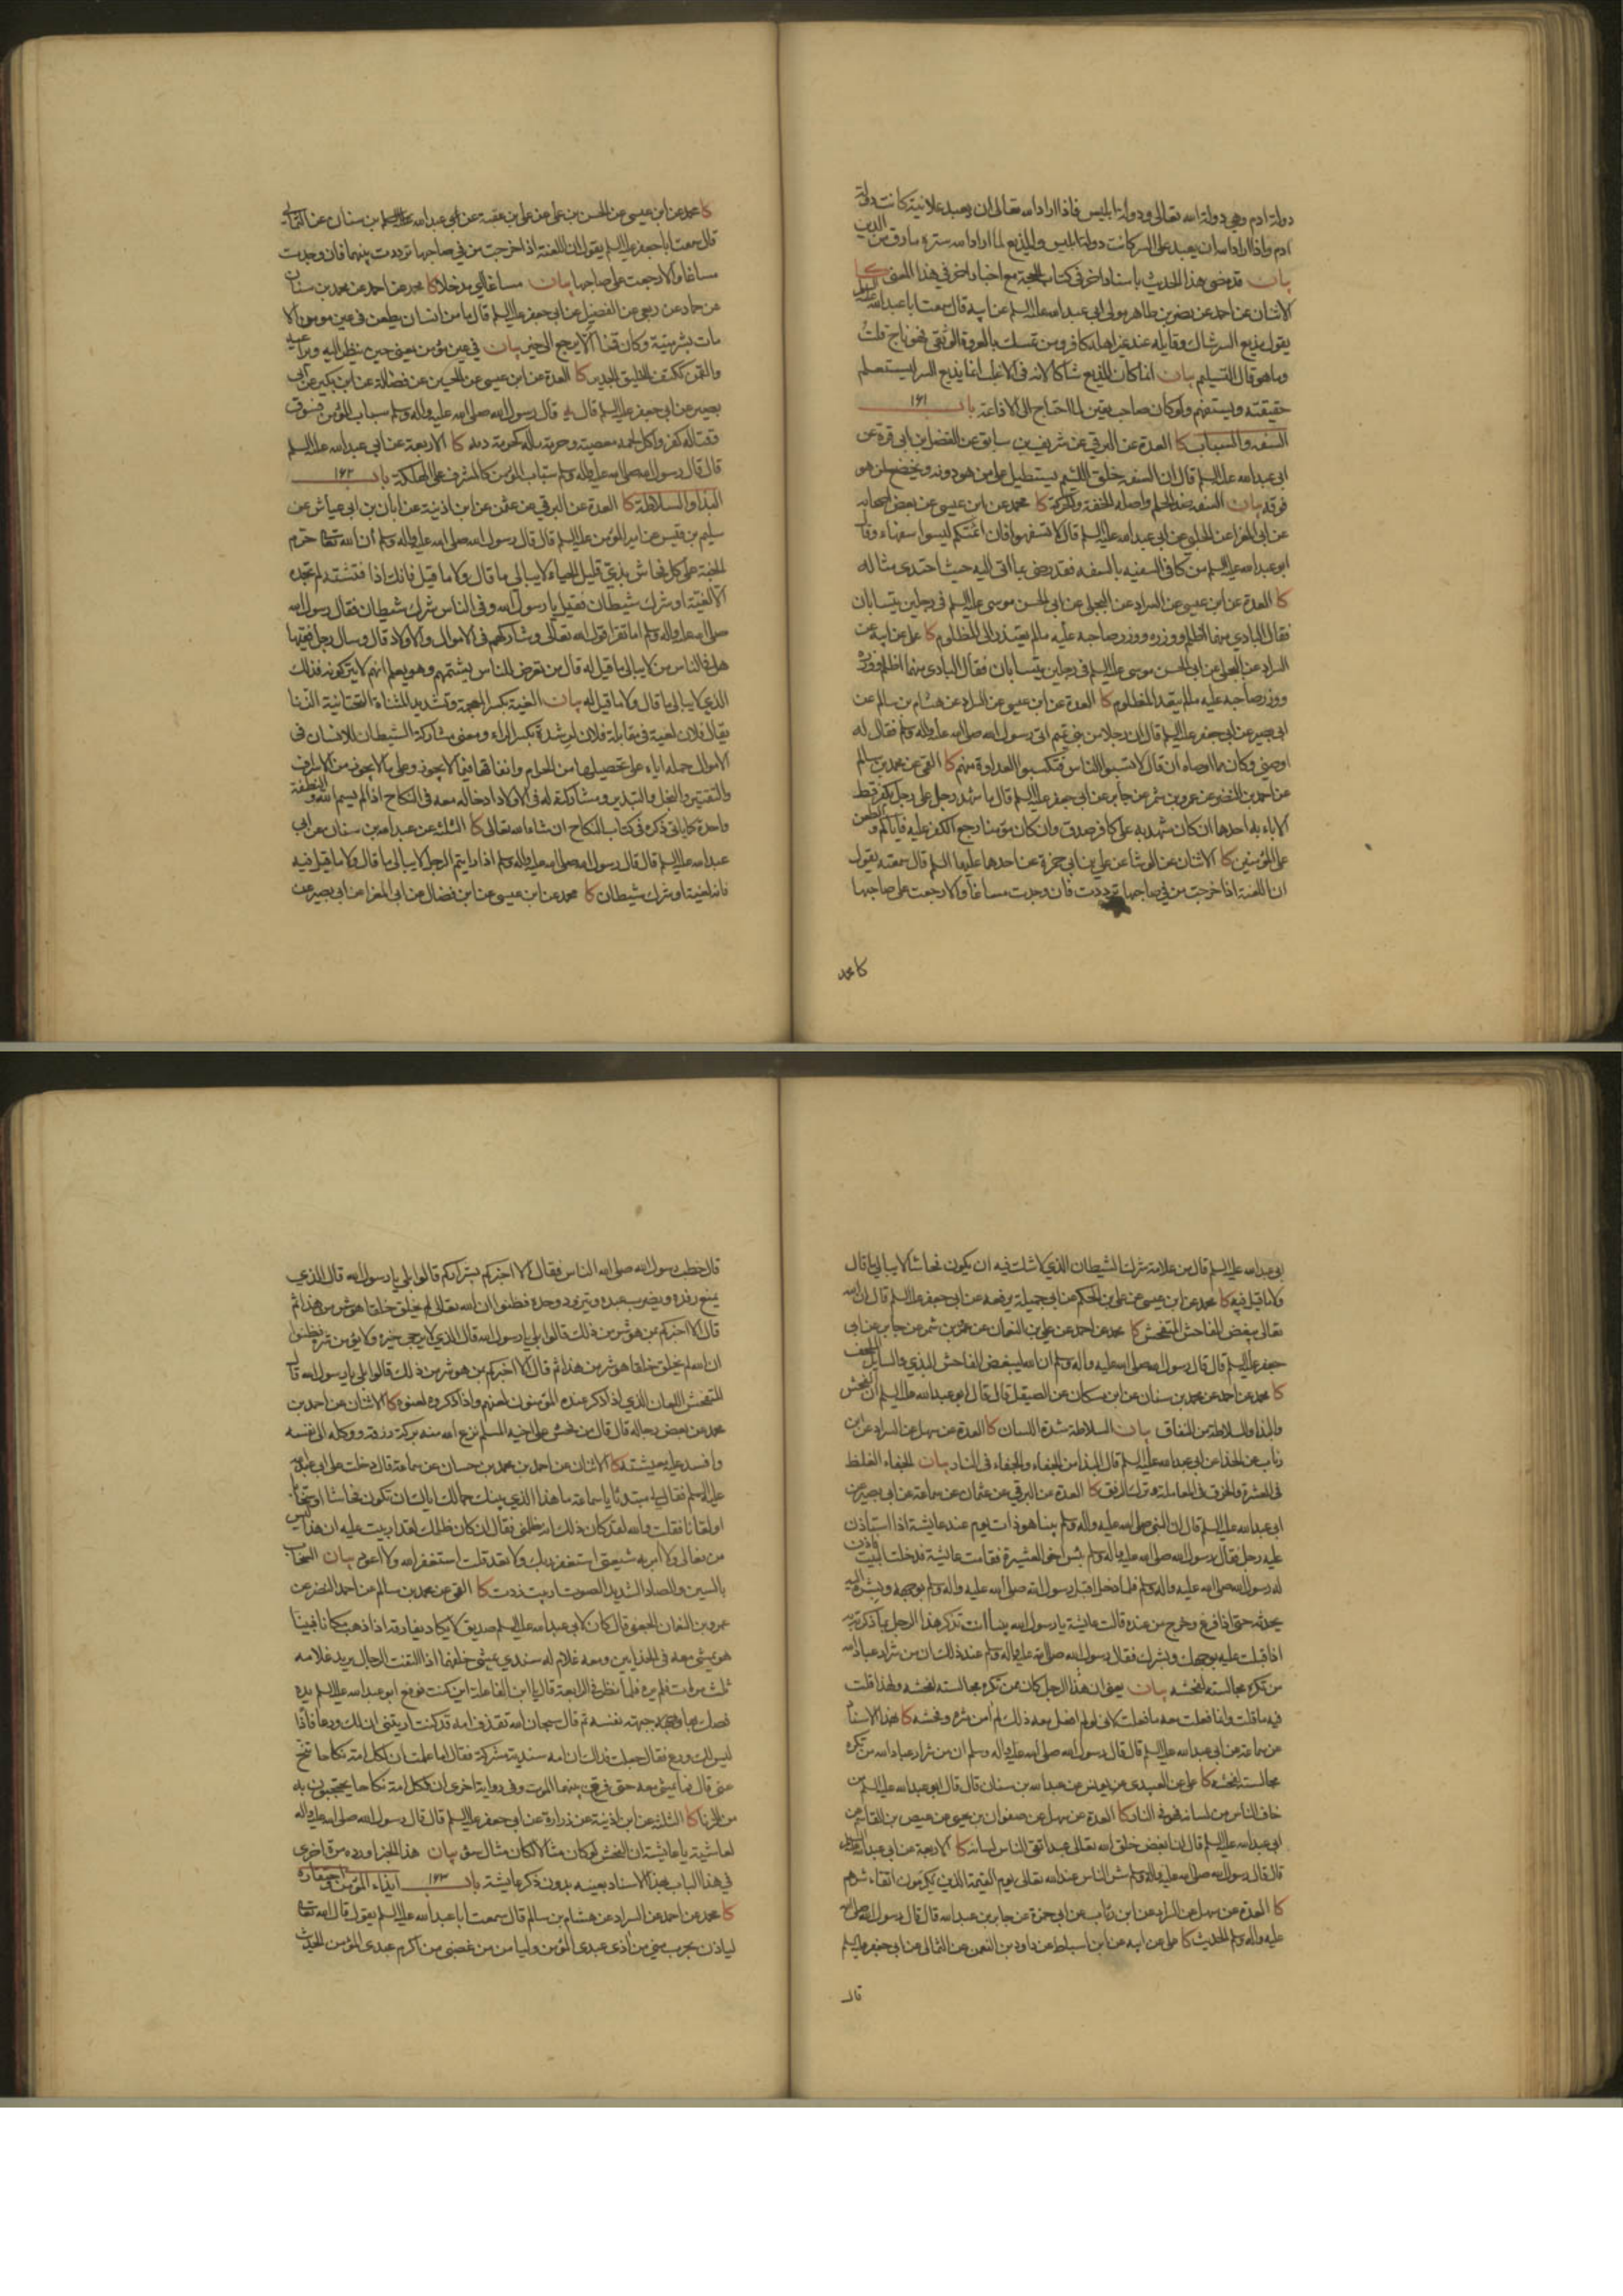 دولة ادم وهي دولة الله تعالى ودولة ابليس فاذا اراد الله تعالى ان يعبد علانية كانت دولة
ادم واذا اراد الله ان يعبد في السر كانت دولة ابليس والمذيع لما اراد الله ستره مارق من الدين
بيان قد مضى هذا الحديث باسناد اخر في كتاب الحجة مع اخبار اخر في هذا المعنى كا
الاثنان عن احمد عن نصر بن طاهر مولى ابي عبد الله عليه السلم عن ابيه قال سمعت ابا عبد الله عليه السلم
يقول مذيع السر شاك وقايله عند غير اهله كافر ومن تمسك بالعروة الوثقى فهو ناج قلت
وما هو قال التسليم بيان انما كان المذيع شاكا لانه في الاغلب انما يذيع السر ليستعلم
حقيقته ويستفهم ولو كان صاحب يقين لما احتاج الى الاذاعة باب ١٦١
السفه والسباب كا العدة عن البرقي عن شريف بن سابق عن الفضل بن ابي قرة عن
ابي عبد الله عليه السلم قال ان السفه خلق اللئيم يستطيل على من هو دونه ويخضع لمن هو
فوقه بيان السفه ضد الحلم واصله الخفة والحركة كا محمد عن ابن عيسى عن بعض اصحابه
عن ابي المغرا عن الحلبي عن ابي عبد الله عليه السلم قال لا تسفهوا فان ائمتكم ليسوا سفهاء وقال
ابو عبد الله عليه السلم من كافى السفيه بالسفه فقد رضي بما اتى اليه حيث احتذى مثاله
كا العدة عن ابن عيسى عن السراد عن البجلي عن ابي الحسن موسى عليه السلم في رجلين يتسابان
فقال البادي منهما اظلم ووزره ووزر صاحبه عليه ما لم يعتذر الى المظلوم كا علي عن ابيه عن
السراد عن البجلي عن ابي الحسن موسى عليه السلم في رجلين يتسابان فقال البادي منهما اظلم ووزره
ووزر صاحبه عليه ما لم يتعد المظلوم كا العدة عن ابن عيسى عن السراد عن هشام بن سالم عن
ابي بصير عن ابي جعفر عليه السلم قال ان رجلا من بني تميم اتى رسول الله صلى الله عليه واله وسلم فقال له
اوصني وكان مما اوصاه ان قال لا تسبوا الناس فتكسبوا العداوة منهم كا القمي عن محمد بن سالم
عن احمد بن النضر عن عمرو بن شمر عن جابر عن ابي جعفر عليه السلم قال ما شهد رجل على رجل بكفر قط
الا باء به احدهما ان كان شهد به على كافر صدق وان كان مؤمنا رجع الكفر عليه فاياكم والطعن
على المؤمنين كا الاثنان عن الوشا عن علي بن ابي حمزة عن احدهما عليهما السلم قال سمعته يقول
ان اللعنة اذا خرجت من في صاحبها ترددت فان وجدت مساغا والا رجعت على صاحبها
كا محمد
كا محمد عن ابن عيسى عن الحسن بن علي عن علي بن عقبة عن عبد الله بن سنان عن الثمالي
قال سمعت ابا جعفر عليه السلم يقول ان اللعنة اذا خرجت من في صاحبها ترددت بينهما فان وجدت
مساغا والا رجعت على صاحبها بيان مساغا اي مدخلا كا محمد عن احمد عن محمد بن سنان
عن حماد عن ربعي عن الفضيل عن ابي جعفر عليه السلم قال ما من انسان يطعن في عين مؤمن الا
مات بشر ميتة وكان قمنا الا يرجع الى خير بيان في عين مؤمن يعني حين ينظر اليه ويراعيه
والقمن ككتف الخليق الجدير كا العدة عن ابن عيسى عن الحسين عن فضالة عن ابن بكير عن ابي
بصير عن ابي جعفر عليه السلم قال قال رسول الله صلى الله عليه واله وسلم سباب المؤمن فسوق
وقتاله كفر واكل لحمه معصية وحرمة ماله كحرمة دمه كا الاربعة عن ابي عبد الله عليه السلم
قال قال رسول الله صلى الله عليه واله وسلم سباب المؤمن كالمشرف على الهلكة باب ١٦٢
البذاء والسلاطة كا العدة عن البرقي عن عثمن عن ابن اذينة عن ابان بن ابي عياش عن
سليم بن قيس عن امير المؤمنين عليه السلم قال قال رسول الله صلى الله عليه واله وسلم ان الله تعالى حرم
الجنة على كل فحاش بذي قليل الحياء لا يبالي ما قال ولا ما قيل فانك اذا فتشته لم تجده
الا لغية او شرك شيطان فقيل يا رسول الله وفي الناس شرك شيطان فقال رسول الله
صلى الله عليه واله وسلم اما تقرا قول الله تعالى وشاركهم في الاموال والاولاد قال وسال رجل فقيها
هل في الناس من لا يبالي ما قيل له قال من تعرض للناس يشتمهم وهو يعلم انهم لا يتركونه فذلك
الذي لا يبالي ما قال ولا ما قيل له بيان الغية بكسر المعجمة وتشديد المثناة التحتانية الزنا
يقال فلان لغية في مقابلة فلان لرشدة بكسر الراء ومعنى مشاركة الشيطان للانسان في
الاموال حمله اياه على تحصيلها من الحرام وانفاقها فيما لا يجوز وعلى ما لا يجوز من الاسراف
والتقتير والبخل والتبذير ومشاركته له في الاولاد ادخاله معه في النكاح اذا لم يسم الله والنطفة
واحدة كما ياتي ذكره في كتاب النكاح ان شاء الله تعالى كا الثلثة عن عبد الله بن سنان عن ابي
عبد الله عليه السلم قال قال رسول الله صلى الله عليه واله وسلم اذا رايتم الرجل لا يبالي ما قال ولا ما قيل فيه
فانه لغية او شرك شيطان كا محمد عن ابن عيسى عن ابن فضال عن ابي المغرا عن ابي بصير عن
ابي عبد الله عليه السلم قال من علامة شرك الشيطان الذي لا شك فيه ان يكون فحاشا لا يبالي ما قال
ولا ما قيل فيه كا محمد عن ابن عيسى عن علي بن الحكم عن ابي جميلة يرفعه عن ابي جعفر عليه السلم قال ان الله
تعالى يبغض الفاحش المتفحش كا محمد عن احمد عن علي بن النعمان عن عمرو بن شمر عن جابر عن ابي
جعفر عليه السلم قال قال رسول الله صلى الله عليه واله وسلم ان الله يبغض الفاحش البذي والسايل الملحف
كا محمد عن احمد عن محمد بن سنان عن ابن مسكان عن الصيقل قال قال ابو عبد الله عليه السلم ان الفحش
والبذا والسلاطة من النفاق بيان السلاطة شدة اللسان كا العدة عن سهل عن السراد عن ابن
رئاب عن الحذا عن ابي عبد الله عليه السلم قال البذا من الجفاء والجفاء في النار بيان الجفاء الغلظ
في العشرة والخرق في المعاملة وترك الرفق كا العدة عن البرقي عن عثمان عن سماعة عن ابي بصير عن
ابي عبد الله عليه السلم قال ان النبي صلى الله عليه واله وسلم بينا هو ذات يوم عند عايشة اذا استاذن
عليه رجل فقال رسول الله صلى الله عليه واله وسلم بئس اخو العشيرة فقامت عايشة فدخلت البيت فاذن
له رسول الله صلى الله عليه واله وسلم فلما دخل اقبل رسول الله صلى الله عليه واله وسلم بوجهه وبشره اليه
يحدثه حتى اذا فرغ وخرج من عنده قالت عايشة يا رسول الله بينا انت تذكر هذا الرجل بما ذكرته به
اذ اقبلت عليه بوجهك وبشرك فقال رسول الله صلى الله عليه واله وسلم عند ذلك ان من شرار عباد الله
من تكره مجالسته لفحشه بيان يعني ان هذا الرجل كان ممن تكره مجالسته لفحشه ولهذا قلت
فيه ما قلت وانما فعلت معه ما فعلت لاني لو لم افعل معه ذلك لم امن شره وفحشه كا بهذا الاسناد
عن سماعة عن ابي عبد الله عليه السلم قال قال رسول الله صلى الله عليه واله وسلم ان من شرار عباد الله من تكره
مجالسته لفحشه كا علي عن العبيدي عن يونس عن عبد الله بن سنان قال قال ابو عبد الله عليه السلم من
خاف الناس من لسانه فهو في النار كا العدة عن سهل عن صفوان بن يحيى عن عيص بن القاسم عن
ابي عبد الله عليه السلم قال ان ابغض خلق الله تعالى عبد اتقى الناس لسانه كا الاربعة عن ابي عبد الله عليه السلم
قال قال رسول الله صلى الله عليه واله وسلم شر الناس عند الله تعالى يوم القيمة الذين يكرمون اتقاء شرهم
كا العدة عن سهل عن السراد عن ابن رئاب عن ابي حمزة عن جابر بن عبد الله قال قال رسول الله صلى الله
عليه واله وسلم الحديث كا علي عن ابيه عن ابن اسباط عن داود بن النعمن عن الثمالي عن ابي جعفر عليه السلم
قال
قال خطب رسول الله صلى الله الناس فقال الا اخبركم بشراركم قالوا بلى يا رسول الله قال الذي
يمنع رفده ويضرب عبده ويتزود وحده فظنوا ان الله تعالى لم يخلق خلقا هو شر من هذا ثم
قال الا اخبركم بمن هو شر من ذلك قالوا بلى يا رسول الله قال الذي لا يرجى خيره ولا يؤمن شره فظنوا
ان الله لم يخلق خلقا هو شر من هذا ثم قال الا اخبركم بمن هو شر من ذلك قالوا بلى يا رسول الله قال
المتفحش اللعان الذي اذا ذكر عنده المؤمنون لعنهم واذا ذكروه لعنوه كا الاثنان عن احمد بن
محمد عن بعض رجاله قال قال من فحش على اخيه المسلم نزع الله منه بركة رزقه ووكله الى نفسه
وافسد عليه معيشته كا الاثنان عن احمد بن محمد بن حسان عن سماعة قال دخلت على ابي عبد الله
عليه السلم فقال لي مبتدئا يا سماعة ما هذا الذي بينك وبين جمالك اياك ان تكون فحاشا او سخابا
او لعانا فقلت والله لقد كان ذلك انه ظلمني فقال ان كان ظلمك لقد اربيت عليه ان هذا ليس
من فعالي ولا امر به شيعتي استغفر ربك ولا تعد قلت استغفر الله ولا اعود بيان السخاب
بالسين والصاد الشديد الصوت اربيت زدت كا القمي عن محمد بن سالم عن احمد النضر عن
عمرو بن النعمان الجعفي قال كان لابي عبد الله عليه السلم صديق لا يكاد يفارقه اذا ذهب مكانا فبينا
هو يمشي معه في الحذايين ومعه غلام له سندي يمشي خلفهما اذا التفت الرجل يريد غلامه
ثلث مرات فلم يره فلما نظر في الرابعة قال يا ابن الفاعلة اين كنت فرفع ابو عبد الله عليه السلم يده
فصك بها جبهة نفسه ثم قال سبحان الله تقذف امه قد كنت اريتني ان لك ورعا فاذا
ليس لك ورع فقال جعلت فداك ان امه سندية مشركة فقال اما علمت ان لكل امة نكاحا تنح
عني قال فما رايته يمشي معه حتى فرق بينهما الموت وفي رواية اخرى ان لكل امة نكاحا يحتجبون به
من الزنا كا الثلثة عن ابن اذينة عن زرارة عن ابي جعفر عليه السلم قال قال رسول الله صلى الله عليه واله
لعايشة يا عايشة ان الفحش لو كان مثالا لكان مثال سوء بيان هذا الخبر اورده مرة اخرى
في هذا الباب بهذا الاسناد بعينه بدون ذكر عايشة باب ١٦٣ ايذاء المؤمن واحتقاره
كا محمد عن احمد عن السراد عن هشام بن سالم قال سمعت ابا عبد الله عليه السلم يقول قال الله تعالى
لياذن بحرب مني من اذى عبدي المؤمن وليامن من غضبي من اكرم عبدي المؤمن الحديث